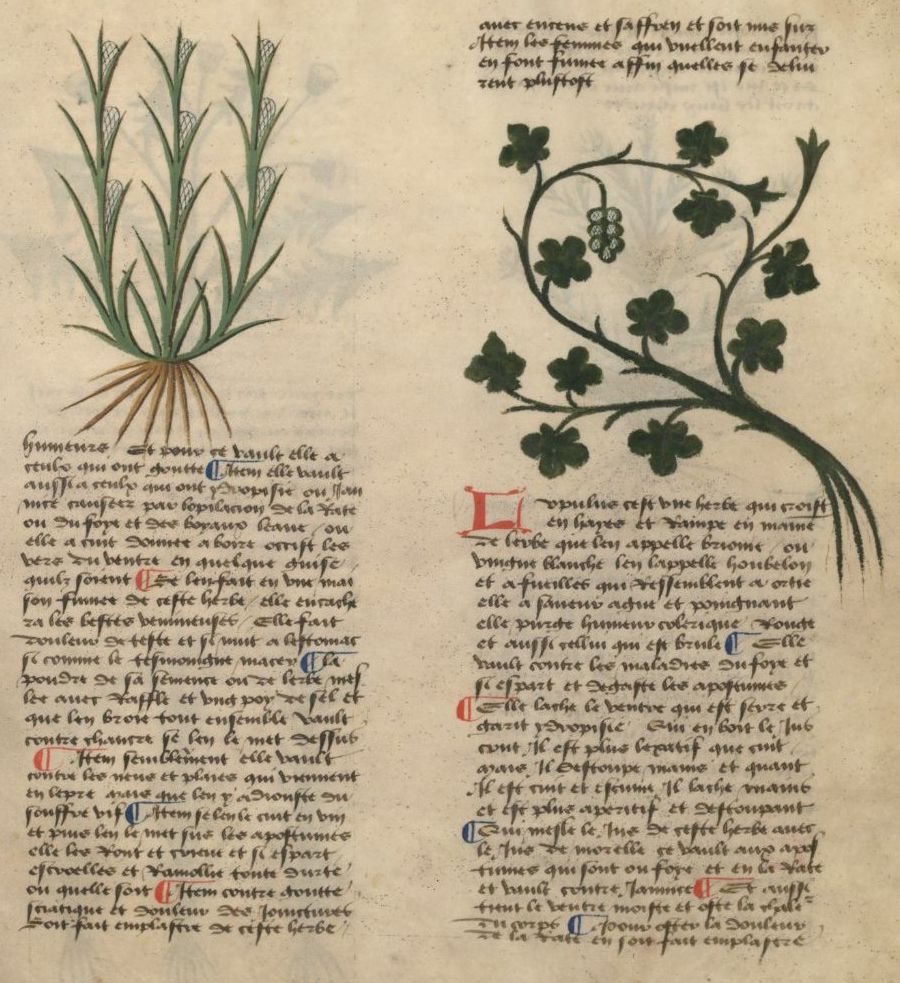 humeurs Et pour ce vault elle a
ceulx qui ont goutte ¶ Item elle vault
aussi a ceulx qui ont ydropisie ou Jau
nice causeez par lopilacion de la Rate
ou du foye et des boyaux leaue ou
elle a cuit donnee a boire occist les
vers du ventre en quelque guise
quilz soient ¶ Se len fait en une mai
son fumee de ceste herbe elle enchace
ra les bestes venimeuses Elle fait
douleur de teste et si nuit a lestomac
si comme le tesmoingne macer ¶ La
poudre de sa semence ou de lerbe mes
lee avec Raffle et ung poy de sel et
que len broie tout ensemble vault
contre chancre se len le met dessus
¶ Item semblement elle vault
contre les neus et plaies qui viennent
en lepre mais que len y adiouste du
souffre vif ¶ Item se len le cuit en vin
et puis len le met sus les apostumes
elle les Ront et cueue et si espart
escroelles et Ramollie toute durte
ou quelle soit ¶ Item contre goutte
sciatique et douleur des Jointures
soit fait emplastre de ceste herbe
avec encens et saffren et soit mis sur
Item les femmes qui vuellent enfanter
en font fumee affin quelles se deliu
rent plustost
Lupulus cest une herbe qui croist
en hayes et Rampe en maniere
de lerbe que len appelle brionie ou
vingne blanche len lappelle houbelon
et a fueilles qui Ressemblent a ortie
elle a saveur ague et poingnant
elle purge humeur colerique Rouge
et aussi cellui qui est brule ¶ Elle
vault contre les maladies du foye et
si espart et degaste les apostumes
¶ Elle lache le ventre qui est serre et
garit ydropisie Qui en boit le Jus
crut Il est plus laxatif que cuit
mais Il destoupe mains et quant
Il est cuit et escume Il lache mains
et est plus aperitif et destoupant
¶ Qui mesle le Jus de ceste herbe avec
le Jus de morelle ce vault aux apos
tumes qui sont ou foye et en la Rate
et vault contre Jaunice ¶ Et aussi
tient le ventre moiste et oste la chale
du corps ¶ Pour oster la douleur
de la Rate en soit fait emplastre